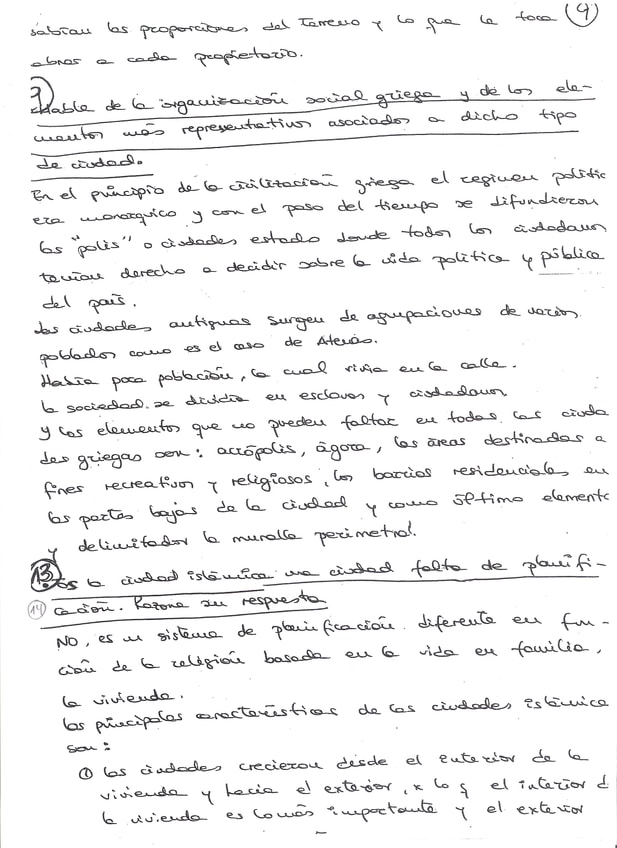 sabían las proporciones del terreno y lo que le toca (4)
obrar a cada propietario.
9) Hable de la organización social griega y de los ele-
mentos más representativos asociados a dicho tipo
de ciudad.
En el principio de la civilización griega el regimen politic
era monarquico y con el paso del tiempo se difundieron
las "polis" o ciudades estado donde todos los ciudadanos
tenían derecho a decidir sobre la vida politica y pública
del país.
Las ciudades antiguas surgen de agrupaciones de varios
poblados como es el caso de Atenas.
Había poca población, la cual vivía en la calle.
la sociedad se dividía en esclavos y ciudadanos
y los elementos que no pueden faltar en todas las ciuda
des griegas son: acrópolis, ágora, las áreas destinadas a
fines recreativos y religiosos, los barrios residenciales en
las partes bajas de la ciudad y como último elemento
y delimitador la muralla perimetral.
13) Es la ciudad islámica una ciudad falta de planifi-
14 cación. Razone su respuesta
NO, es un sistema de planificación diferente en fun-
ción de la religión basada en la vida en familia,
la vivienda.
las principales características de las ciudades islámica
son:
① las ciudades crecieron desde el interior de la
vivienda y hacia el exterior, x lo q el interior d
la vivienda es lo más importante y el exterior